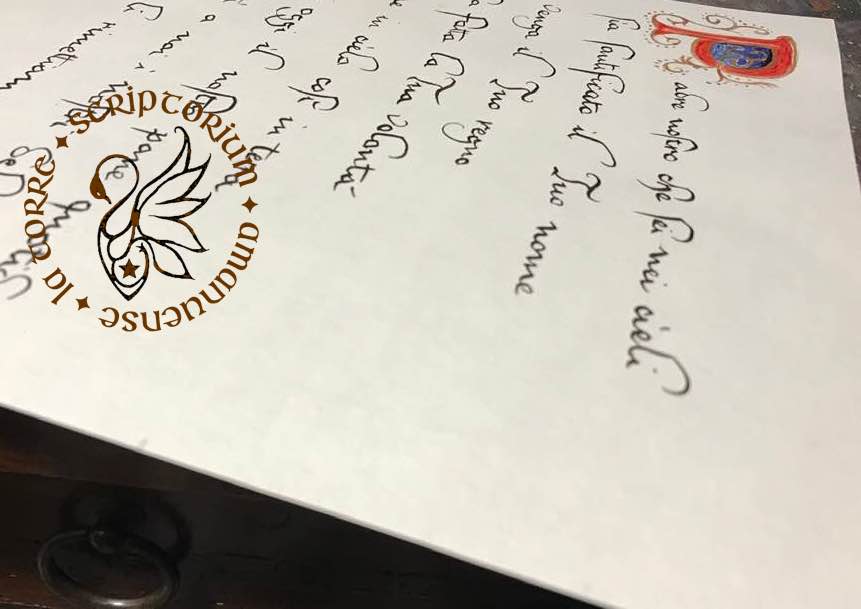 Padre nostro che sei nei cieli
sia santificato il Tuo nome
venga il Tuo regno
fatta la Tua volontà
in cielo così in terra
oggi il nostro pane
a noi i nostri
rimettiam
la torre ✦ scriptorium ✦ amanuense